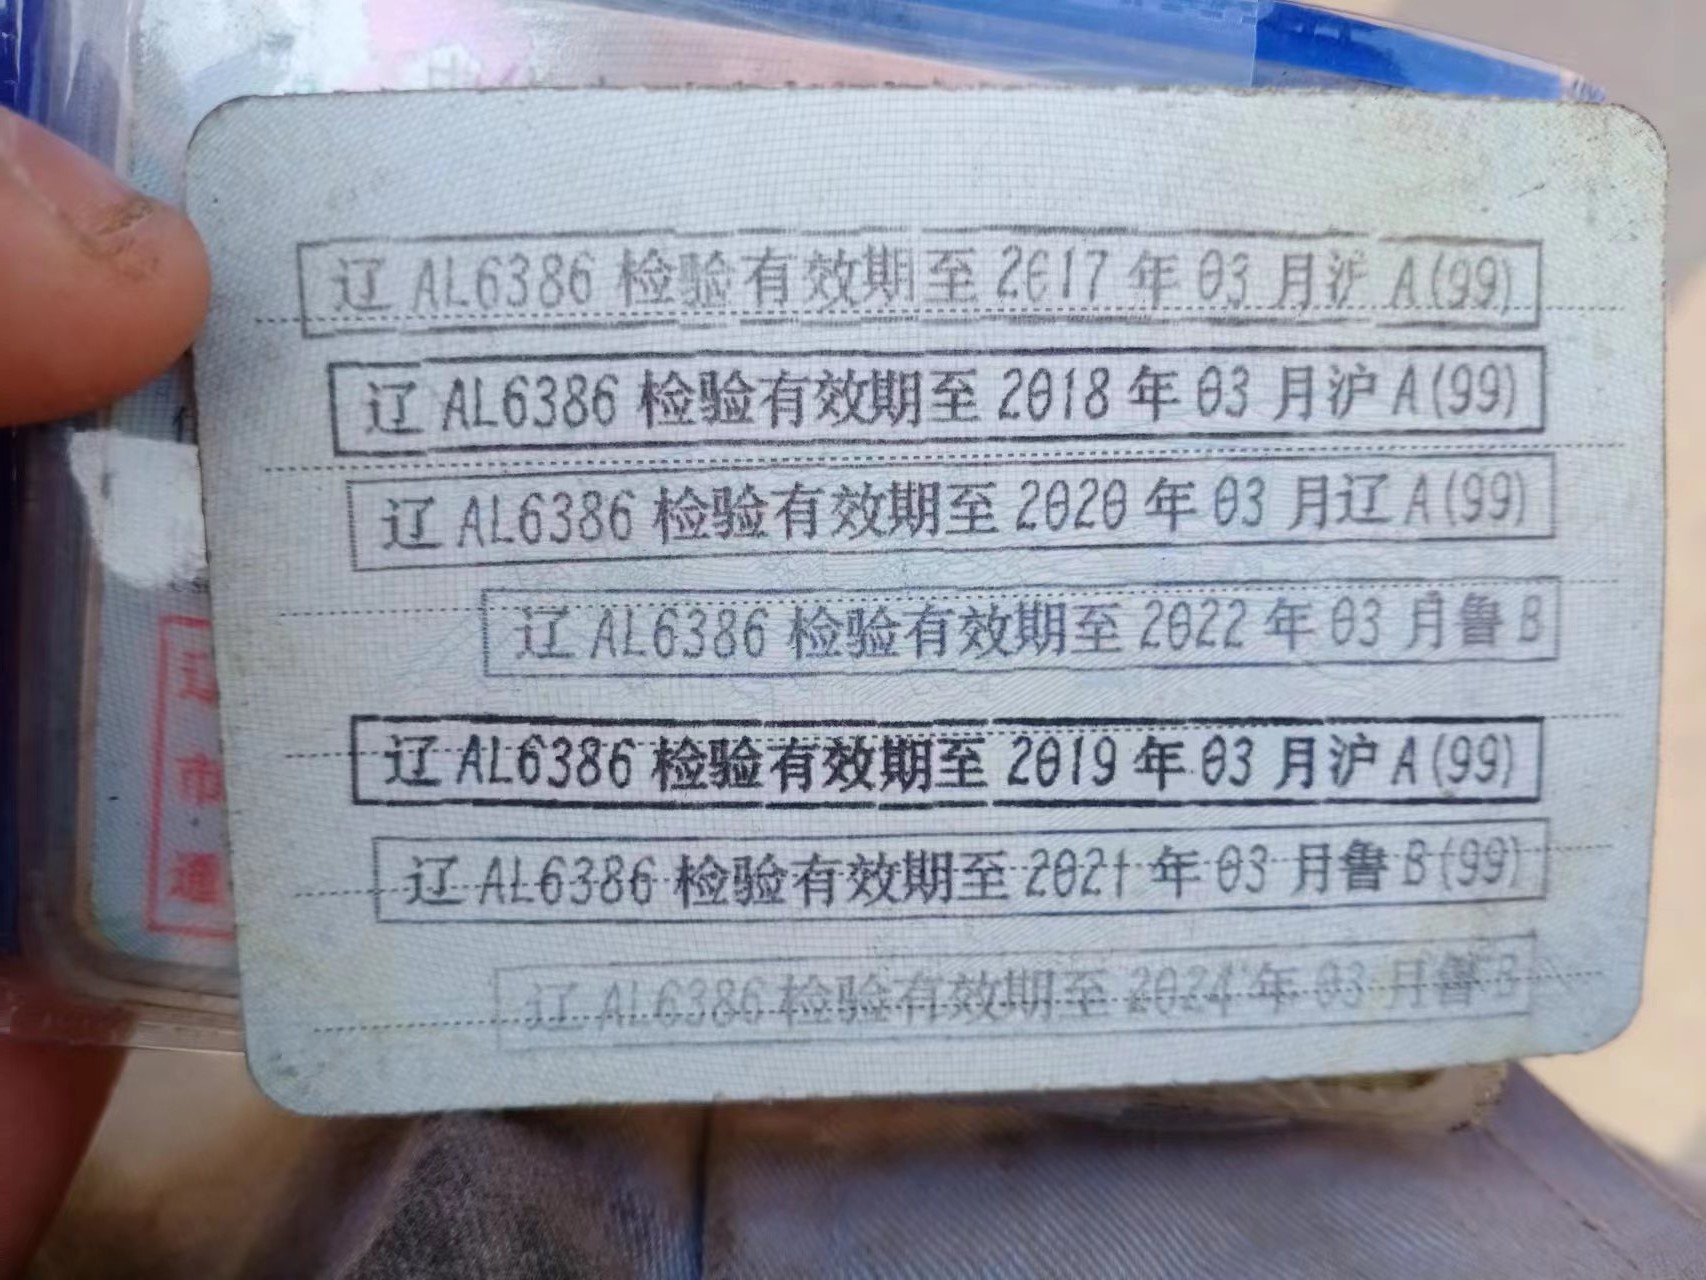 辽 AL6386 检验有效期至 2017 年 03 月沪 A(99)
辽 AL6386 检验有效期至 2018 年 03 月沪 A(99)
辽 AL6386 检验有效期至 2020 年 03 月辽 A(99)
辽 AL6386 检验有效期至 2022 年 03 月鲁 B
辽 AL6386 检验有效期至 2019 年 03 月沪 A(99)
辽 AL6386 检验有效期至 2021 年 03 月鲁 B(99)
辽 AL6386 检验有效期至 2024 年 03 月鲁 B
辽
市
通